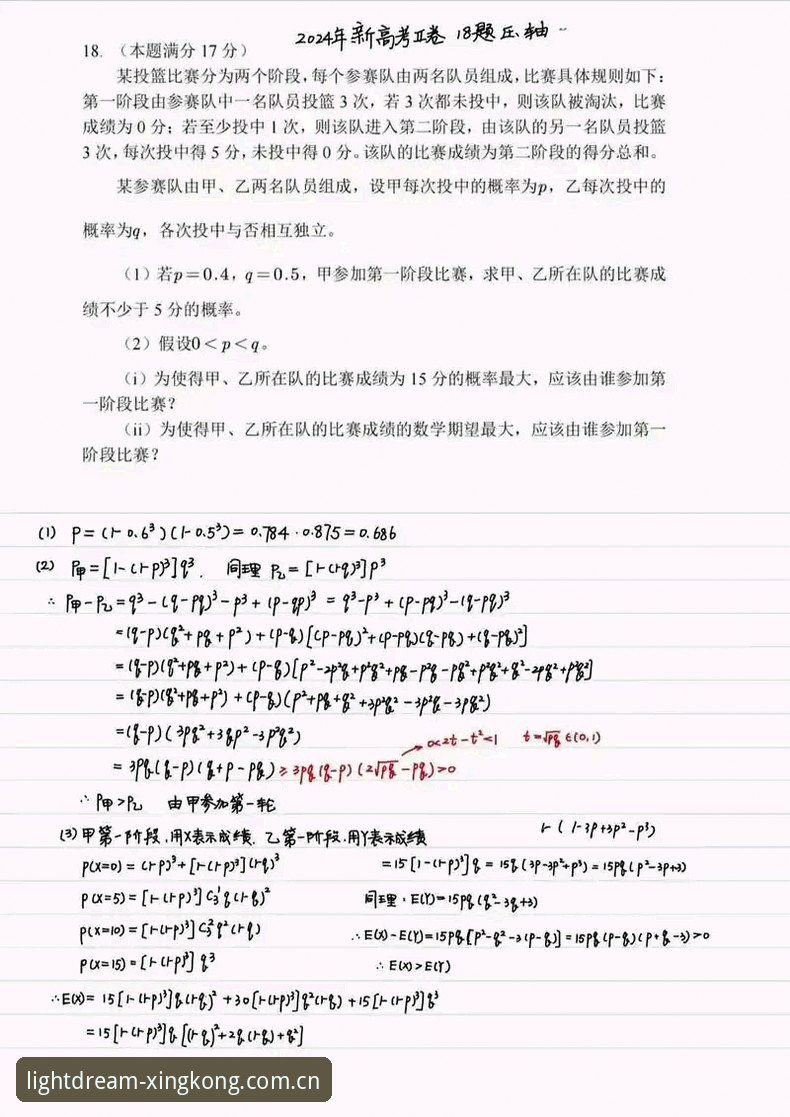 2024年新高考Ⅱ卷 18题压轴
18. （本题满分 17 分）
某投篮比赛分为两个阶段，每个参赛队由两名队员组成，比赛具体规则如下：
第一阶段由参赛队中一名队员投篮 3 次，若 3 次都未投中，则该队被淘汰，比赛
成绩为 0 分；若至少投中 1 次，则该队进入第二阶段，由该队的另一名队员投篮
3 次，每次投中得 5 分，未投中得 0 分。该队的比赛成绩为第二阶段的得分总和。
某参赛队由甲、乙两名队员组成，设甲每次投中的概率为p，乙每次投中的
概率为q，各次投中与否相互独立。
（1）若p＝0.4，q＝0.5，甲参加第一阶段比赛，求甲、乙所在队的比赛成
绩不少于 5 分的概率。
（2）假设0＜p＜q。
（i）为使得甲、乙所在队的比赛成绩为 15 分的概率最大，应该由谁参加第
一阶段比赛？
（ii）为使得甲、乙所在队的比赛成绩的数学期望最大，应该由谁参加第一
阶段比赛？
(1) P=(1-0.6³)(1-0.5³)=0.784·0.875=0.686
(2) P甲=[1-(1-p)³]q³. 同理 P乙=[1-(1-q)³]p³
∴ P甲-P乙=q³-(q-pq)³-p³+(p-qp)³=q³-p³+(p-pq)³-(q-pq)³
=(q-p)(q²+pq+p²)+(p-q)[(p-pq)²+(p-pq)(q-pq)+(q-pq)²]
=(q-p)(q²+pq+p²)+(p-q)[p²-2p²q+p²q²+pq-p²q-pq²+p²q²+q²-2pq²+p²q²]
=(q-p)(q²+pq+p²)+(p-q)(p²+pq+q²+3p²q²-3p²q-3pq²)
=(q-p)(3pq²+3qp²-3p²q²) 0<2t-t²<1 t=√pq∈(0,1)
=3pq(q-p)(q+p-pq)≥3pq(q-p)(2√pq-pq)>0
∴P甲>P乙 由甲参加第一轮
1-(1-3p+3p²-p³)
(3)甲第一阶段,用X表示成绩. 乙第一阶段.用Y表示成绩
P(X=0)=(1-p)³+[1-(1-p)³](1-q)³ =15[1-(1-p)³]q=15q(3p-3p²+p³)=15pq(p²-3p+3)
P(X=5)=[1-(1-p)³]C₃¹q(1-q)² 同理,E(Y)=15pq(q²-3q+3)
P(X=10)=[1-(1-p)³]C₃²q²(1-q) ∴E(X)-E(Y)=15pq[p²-q²-3(p-q)]=15pq(p-q)(p+q-3)>0
P(X=15)=[1-(1-p)³]q³ ∴E(X)>E(Y)
∴E(X)=15[1-(1-p)³]q(1-q)²+30[1-(1-p)³]q²(1-q)+15[1-(1-p)³]q³
=15[1-(1-p)³]q[(1-q)²+2q(1-q)+q²]
lightdream-xingkong.com.cn